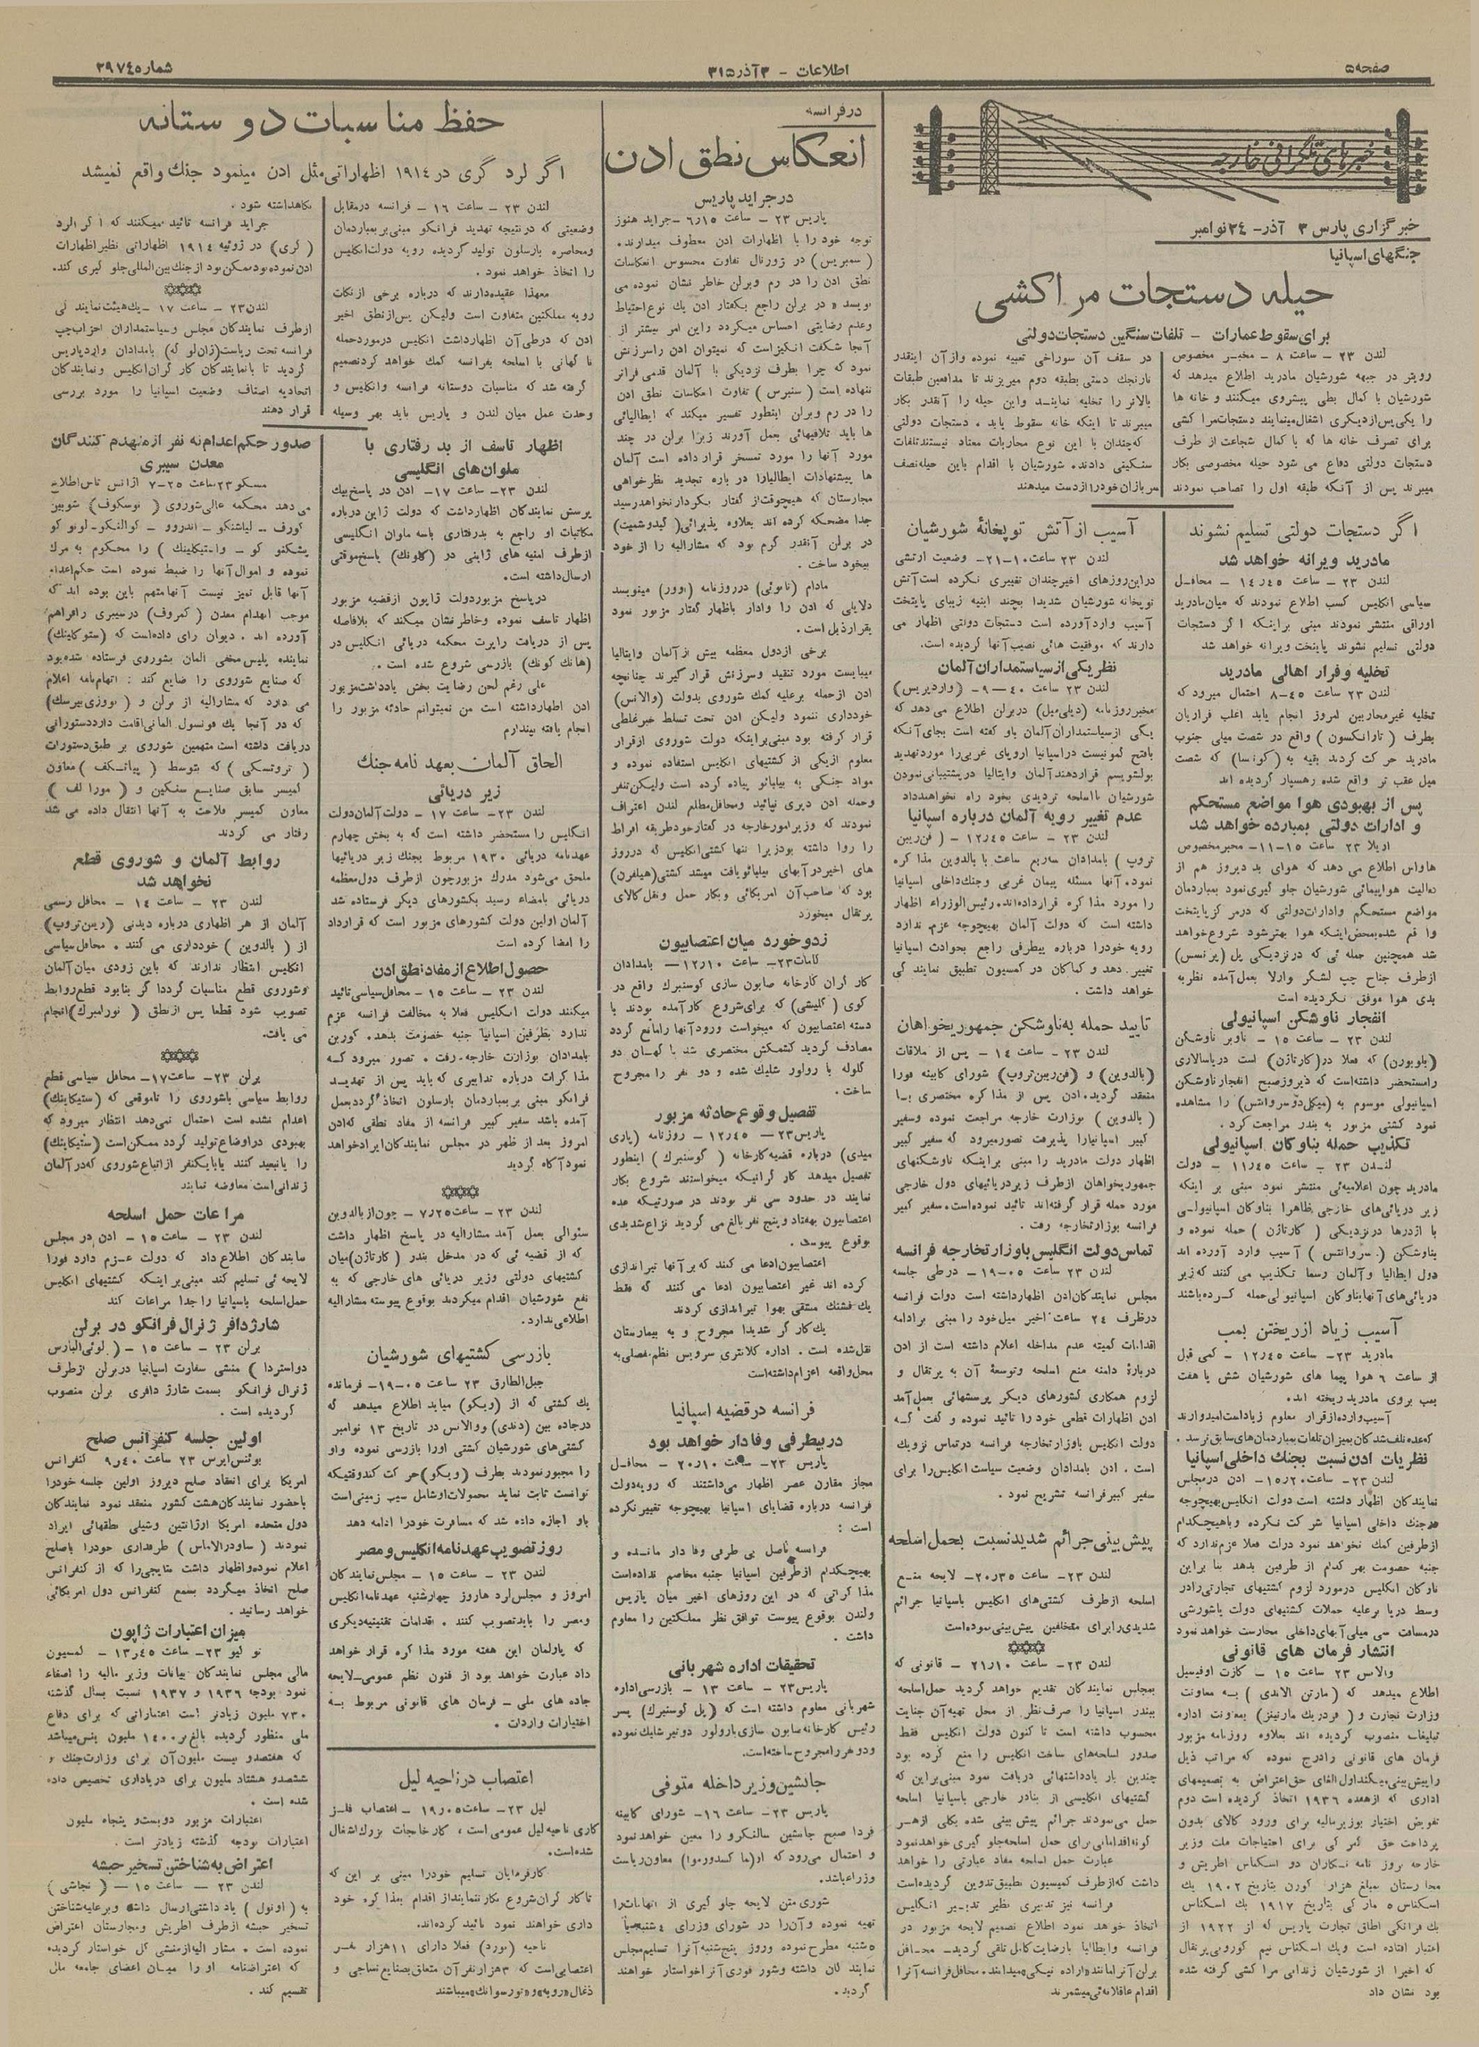 صفحه ۵
اطلاعات - ۳ آذر ۳۱۵
شماره ۲۹۷۴۵
خبرهای تلگرافی خارجه
خبرگزاری پارس ۳ آذر - ۲۴ نوامبر
جنگهای اسپانیا
حیله دستجات مراکشی
برای سقوط عمارات - تلفات سنگین دستجات دولتی
لندن ۲۳ - ساعت ۸ - مخبر مخصوص
رویتر در جبهه شورشیان مادرید اطلاع میدهد که
شورشیان با کمال بطی پیشروی میکنند و خانه ها
را یکی پس از دیگری اشغال مینمایند دستجات مراکشی
برای تصرف خانه ها که با کمال شجاعت از طرف
دستجات دولتی دفاع می شود حیله مخصوصی بکار
میبرند پس از آنکه طبقه اول را تصاحب نمودند
در سقف آن سوراخی تعبیه نموده و از آن اینقدر
نارنجک دستی بطبقه دوم میریزند تا مدافعین طبقات
بالاتر را تخلیه نمایند و این حیله را آنقدر بکار
میبرند تا اینکه خانه سقوط یابد . دستجات دولتی
که چندان با این نوع محاربات معتاد نیستند تلفات
سنگینی دادند. شورشیان با اقدام باین حیله نصف
سربازان خود را از دست میدهند
اگر دستجات دولتی تسلیم نشوند
مادرید ویرانه خواهد شد
لندن ۲۳ - ساعت ۱۴٫۴۵ - محافل
سیاسی انگلیس کسب اطلاع نمودند که میان مادرید
اوراقی منتشر نمودند مبنی براینکه اگر دستجات
دولتی تسلیم نشوند پایتخت ویرانه خواهد شد
تخلیه و فرار اهالی مادرید
لندن ۲۳ ساعت ۴۵-۸ احتمال میرود که
تخلیه غیر محاربین امروز انجام یابد اغلب فراریان
بطرف ( تارانکسون ) واقع در شصت میلی جنوب
مادرید حرکت کردند بقیه به ( کونسا ) که شصت
میل عقب تر واقع شده رهسپار گردیده اند
پس از بهبودی هوا مواضع مستحکم
و ادارات دولتی بمبارده خواهد شد
آویلا ۲۳ ساعت ۱۵-۱۱- مخبر مخصوص
هاواس اطلاع می دهد که هوای بد دیروز هم از
فعالیت هواپیمائی شورشیان جلوگیری نمود بمباردمان
مواضع مستحکم و ادارات دولتی که در مرکز پایتخت
واقع شده بمحض اینکه هوا بهتر شود شروع خواهد
شد همچنین حمله ئی که در نزدیکی پل ( پرنسس )
از طرف جناح چپ لشگر وارلا بعمل آمده نظر به
بدی هوا موفق نگردیده است
انفجار ناوشکن اسپانیولی
لندن ۲۳ - ساعت ۱۵ - ناوبر ناوشکن
که فعلا در (کارتاژن) است دریاسالاری
را مستحضر داشته است که دیروز صبح انفجار ناوشکن
اسپانیولی موسوم به (میکل دوسروانتس) را مشاهده
نمود کشتی مزبور به بندر مراجعت کرد .
تکذیب حمله بناوگان اسپانیولی
لندن ۲۳ - ساعت ۱۱٫۴۵ - دولت
مادرید چون اعلامیه ئی منتشر نمود مبنی بر اینکه
زیر دریائی های خارجی ظاهرا بناوگان اسپانیولی
با اژدرها در نزدیکی ( کارتاژن ) حمله نموده و
بناوشکن ( سروانتس ) آسیب وارد آورده اند
دول ایطالیا و آلمان رسما تکذیب می کنند که زیر
دریائی های آنها بناوگان اسپانیولی حمله کرده باشند
آسیب زیاد از ریختن بمب
مادرید ۲۳- ساعت ۱۲٫۴۵ - کمی قبل
از ساعت ۶ هوا پیما های شورشیان شش یا هفت
بمب بروی مادرید ریخته اند.
آسیب وارده از قرار معلوم زیاد است امیدوارند
که عده تلف شدگان بمیزان تلفات بمباردمان های سابق نرسد .
نظریات ادن نسبت بجنگ داخلی اسپانیا
لندن ۲۳- ساعت ۱۵٫۲۰ - ادن در مجلس
نمایندگان اظهار داشته است دولت انگلیس بهیچوجه
در جنگ داخلی اسپانیا شرکت نکرده و با هیچکدام
از طرفین کمک نخواهد نمود دولت فعلا عزم ندارد که
جنبه خصومت بهر کدام از طرفین بدهد بنا براین
ناوگان انگلیس در مورد لزوم کشتیهای تجارتی را در
وسط دریا بر علیه حملات کشتیهای دولت یا شورشی
در مسافت سی میلی آبهای داخلی محارست خواهد نمود
انتشار فرمان های قانونی
والانس ۲۳ ساعت ۱۵ - کازت اوفیسیل
اطلاع میدهد که ( مارتن الامدی ) به معاونت
وزارت تجارت و ( فردریک مارتینز ) بمعونت اداره
تبلیغات منصوب گردیده اند بعلاوه روزنامه مزبور
فرمان های قانونی را درج نموده که مراتب ذیل
را پیش بینی میکند اول الغای حق اعتراض به تصمیمهای
اداری که از بعد ۱۹۳۶ اتخاذ گردیده است دوم
تفویض اختیار بوزیر مالیه برای ورود کالای بدون
پرداخت حق گمرکی برای احتیاجات ملت وزیر
بود نشان داد
آسیب از آتش توپخانهٔ شورشیان
لندن ۲۳ ساعت ۱۰-۲۱- وضعیت ارتشی
در این روزهای اخیر چندان تغییری نکرده است آتش
توپخانه شورشیان شدیدا بچند ابنیه زیبای پایتخت
آسیب وارد آورده است دستجات دولتی اظهار می
دارند که موفقیت هائی نصیب آنها گردیده است.
نظر یکی از سیاستمداران آلمان
لندن ۲۳ ساعت ۴۰ - ۹ -
مخبر روزنامه (دیلی میل) در برلن اطلاع می دهد که
یکی از سیاستمداران آلمان باو گفته است بجای آنکه
بافتح کمونیست در اسپانیا اروپای غربی را مورد تهدید
بولشویسم قرار دهند آلمان و ایتالیا در پشتیبانی نمودن
شورشیان با اسلحه تردیدی بخود راه نخواهند داد
عدم تغییر رویه آلمان درباره اسپانیا
لندن ۲۳ - ساعت ۱۲٫۴۵ - ( فن ریبن
تروپ ) بامدادان سه ربع ساعت با بالدوین مذاکره
نمود . آنها مسئله پیمان غربی و جنک داخلی اسپانیا
را مورد مذاکره قرار داده اند. رئیس الوزراء اظهار
داشته است که دولت آلمان بهیچوجه عزم ندارد
رویه خود را درباره بیطرفی راجع بحوادث اسپانیا
تغییر دهد و کماکان در کمسیون تطبیق نمایندگی
خواهد داشت .
تایید حمله به ناوشکن جمهوریخواهان
لندن ۲۳ - ساعت ۱۴ - پس از ملاقات
(بالدوین) و (فن ریبن تروپ) شورای کابینه فورا
منعقد گردید. ادن پس از مذاکره مختصری با
( بالدوین ) بوزارت خارجه مراجعت نموده و سفیر
کبیر اسپانیا را پذیرفت تصور میرود که سفیر کبیر
اظهار دولت مادرید را مبنی براینکه ناوشکنهای
جمهوریخواهان از طرف زیر دریائیهای دول خارجی
مورد حمله قرار گرفته اند تائید نموده است. سفیر کبیر
فرانسه بوزارتخارجه رفت .
تماس دولت انگلیس با وزارتخارجه فرانسه
لندن ۲۳ ساعت ۰۵-۱۹ - در طی جلسه
مجلس نمایندگان ادن اظهار داشته است دولت فرانسه
در ظرف ۲۴ ساعت اخیر میل خود را مبنی بر ادامه
اقدامات کمیته عدم مداخله اعلام داشته است از ادن
دربارهٔ دامنه منع اسلحه و توسعهٔ آن به پرتقال و
لزوم همکاری کشورهای دیگر پرسشهائی بعمل آمد
ادن اظهارات قطعی خود را تائید نموده و گفت که
دولت انگلیس با وزارتخارجه فرانسه در تماس نزدیک
است . ادن بامدادان وضعیت سیاست انگلیس را برای
سفیر کبیر فرانسه تشریح نمود .
پیش بینی جرائم شدید نسبت بحمل اسلحه
لندن ۲۳- ساعت ۲۰٫۳۵- لایحه منع
اسلحه از طرف کشتی های انگلیس باسپانیا جرائم
شدیدی را برای متخلفین پیش بینی نموده است
لندن ۲۳- ساعت ۲۱٫۱۰ - قانونی که
بمجلس نمایندگان تقدیم خواهد گردید حمل اسلحه
ببندر اسپانیا را صرف نظر از محل تهیه آن جنایت
محسوب داشته است تا کنون دولت انگلیس فقط
صدور اسلحه های ساخت انگلیس را منع کرده بود
چندین بار یادداشتهائی دریافت نمود مبنی براین که
کشتیهای انگلیسی از بنادر خارجی باسپانیا اسلحه
حمل می نمودند جرائم پیش بینی شده یکی از هر
گونه اقداماتی برای حمل اسلحه جلوگیری خواهد نمود
عبارت حمل اسلحه مفاد عبارتی را خواهد
داشت که از طرف کمیسیون تطبیق تدوین گردیده است
فرانسه نیز تدبیری نظیر تدبیر انگلیس
اتخاذ خواهد نمود اطلاع تصمیم لایحه مزبور در
فرانسه و ایطالیا با رضایت کامل تلقی گردید- محافل
برلن آنرا مانند «اراده نیکی» میدانند. محافل فرانسه آنرا
اقدام عاقلانه ئی میشمرند
در فرانسه
انعکاس نطق ادن
در جراید پاریس
پاریس ۲۳ - ساعت ۶٫۱۵ - جراید هنوز
توجه خود را با اظهارات ادن معطوف میدارند.
در ژورنال تفاوت محسوس انعکاسات
نطق ادن را در رم و برلن خاطر نشان نموده می
نویسد « در برلن راجع بگفتار ادن یک نوع احتیاط
و عدم رضایتی احساس میگردد و این امر بیشتر از
آنجا شگفت انگیز است که نمیتوان ادن را سرزنش
نمود که چرا بطرف نزدیکی با آلمان قدمی فراتر
ننهاده است
ها باید تلافیهائی بعمل آورند زیرا برلن در چند
مورد آنها را مورد تمسخر قرار داده است آلمان
ها پیشنهادات ایطالیا را در باره تجدید نظر خواهی
مجارستان که هیچوقت از گفتار بکردار نخواهد رسید
جدا مضحکه کرده اند بعلاوه پذیرائی ( گیدوشمیت)
در برلن آنقدر گرم بود که مشارالیه را از خود
بیخود ساخت .
مادام (تابوئی) در روزنامه (اوور) مینویسد
دلایلی که ادن را وادار باظهار گفتار مزبور نمود
بقرار ذیل است .
برخی از دول معظمه بیش از آلمان و ایتالیا
میبایست مورد تنقید و سرزنش قرار گیرند چنانچه
ادن از حمله بر علیه کمک شوروی بدولت (والانس)
خودداری ننمود ولیکن ادن تحت تسلط خبر غلطی
قرار گرفته بود مبنی براینکه دولت شوروی از قرار
معلوم از یکی از کشتیهای انگلیس استفاده نموده و
مواد جنگی به بیلبائو پیاده کرده است ولیکن تنفر
و حمله ادن دیری نپائید و محافل مطلع لندن اعتراف
نمودند که وزیر امور خارجه در گفتار خود طریقه افراط
را روا داشته بود زیرا تنها کشتی انگلیس که در روز
های اخیر در آبهای بیلبائو یافت میشد کشتی (هیلفرن)
بود که صاحب آن امریکائی و بکار حمل و نقل کالای
پرتقال میخورد
زد و خورد میان اعتصابیون
بامدادان
کارگران کارخانه صابون سازی گوستنبرک واقع در
کوی ( کلیشی) که برای شروع کار آمده بودند با
دسته اعتصابیون که میخواست ورود آنها را مانع گردد
مصادف گردید کشمکش مختصری شد ناگهان دو
گلوله با رولور شلیک شده و دو نفر را مجروح
ساخت .
تفصیل وقوع حادثه مزبور
پاریس ۲۳ - ۱۲٫۴۵ - روزنامه (پاری
میدی) درباره قضیه کارخانه ( گوستنبرک ) اینطور
تفصیل میدهد کارگرانیکه میخواستند شروع بکار
نمایند در حدود سی نفر بودند در صورتیکه عده
اعتصابیون بهفتاد و پنج نفر بالغ می گردید نزاع شدیدی
بوقوع پیوست .
اعتصابیون ادعا می کنند که بر آنها تیراندازی
کرده اند غیر اعتصابیون ادعا می کنند که فقط
یک فشنگ مشقی بهوا تیراندازی کردند
یک کارگر شدیدا مجروح و به بیمارستان
نقل شده است . اداره کلانتری سرویس نظم مفصلی به
محل واقعه اعزام داشته است
فرانسه در قضیه اسپانیا
در بیطرفی وفادار خواهد بود
پاریس ۲۳- ساعت ۲۰٫۱۰ - محافل
مجاز مقارن عصر اظهار می داشتند که رویه دولت
فرانسه درباره قضایای اسپانیا بهیچوجه تغییر نکرده
است :
فرانسه باصل بی طرفی وفادار مانده و
بهیچکدام از طرفین اسپانیا جنبه مخاصم نداده است
مذاکراتی که در این روزهای اخیر میان پاریس
و لندن بوقوع پیوست توافق نظر مملکتین را معلوم
داشت .
تحقیقات اداره شهربانی
پاریس ۲۳- ساعت ۱۳ - بازرسی اداره
شهربانی معلوم داشته است که (پل گوستنبرک) پسر
رئیس کارخانه صابون سازی با رولور دو تیر شلیک نموده
و دو هر را مجروح ساخته است.
جانشین وزیر داخله متوفی
پاریس ۲۳ - ساعت ۱۶- شورای کابینه
فردا صبح جانشین سالنگرو را معین خواهد نمود
و احتمال می رود که او (ماکسدورموا) معاون ریاست
وزراء باشد.
شوری متن لایحه جلوگیری از اتهامات را
تهیه نموده و آن را در شورای وزرای ۴ شنبه یا
۵ شنبه مطرح نموده و روز پنجشنبه آنرا تسلیم مجلس
نمایندگان داشته و شور فوری آنرا خواستار خواهند
گردید.
حفظ مناسبات دوستانه
اگر لرد گری در ۱۹۱۴ اظهاراتی مثل ادن مینمود جنک واقع نمیشد
لندن ۲۳ - ساعت ۱۶ - فرانسه در مقابل
وضعیتی که در نتیجه تهدید فرانکو مبنی بر بمباردمان
و محاصره بارسلون تولید گردیده رویه دولت انگلیس
را اتخاذ خواهد نمود .
معهذا عقیده دارند که درباره برخی از نکات
رویه مملکتین متفاوت است ولیکن پس از نطق اخیر
ادن که در طی آن اظهار داشت انگلیس در مورد حمله
ناگهانی با اسلحه بفرانسه کمک خواهد کرد تصمیم
گرفته شد که مناسبات دوستانه فرانسه و انگلیس و
وحدت عمل میان لندن و پاریس باید بهر وسیله
نگاهداشته شود .
جراید فرانسه تائید میکنند که اگر لرد
( گری ) در ژوئیه ۱۹۱۴ اظهاراتی نظیر اظهارات
ادن نموده بود ممکن بود از جنک بین المللی جلوگیری کند.
لندن ۲۳ - ساعت ۱۷ - یک هیئت نمایندگی
از طرف نمایندگان مجلس و سیاستمداران احزاب چپ
فرانسه تحت ریاست (ژان لوگه) بامدادان وارد پاریس
گردید تا با نمایندگان کارگران انگلیس و نمایندگان
اتحادیه اصناف وضعیت اسپانیا را مورد بررسی
قرار دهند
اظهار تاسف از بد رفتاری با
ملوان های انگلیسی
لندن ۲۳- ساعت ۱۷- ادن در پاسخ یک
پرسش نمایندگان اظهار داشت که دولت ژاپن درباره
مکاتبات او راجع به بدرفتاری با سه ملوان انگلیسی
از طرف امنیه های ژاپنی در (کلونک) پاسخ موقتی
ارسال داشته است.
در پاسخ مزبور دولت ژاپون از قضیه مزبور
اظهار تاسف نموده و خاطر نشان میکند که بلافاصله
پس از دریافت راپرت محکمه دریائی انگلیس در
(هانک کونک) بازرسی شروع شده است .
علی رغم لحن رضایت بخش یادداشت مزبور
ادن اظهار داشته است من نمیتوانم حادثه مزبور را
انجام یافته بپندارم
الحاق آلمان بعهد نامه جنک
زیر دریائی
لندن ۲۳- ساعت ۱۷ - دولت آلمان دولت
انگلیس را مستحضر داشته است که به بخش چهارم
عهدنامه دریائی ۱۹۳۰ مربوط بجنک زیر دریائیها
ملحق می شود مدرک مزبور چون از طرف دول معظمه
دریائی بامضاء رسید بکشورهای دیگر فرستاده شد
آلمان اولین دولت کشورهای مزبور است که قرارداد
را امضا کرده است
حصول اطلاع از مفاد نطق ادن
لندن ۲۳ - ساعت ۱۵ - محافل سیاسی تائید
میکنند دولت انگلیس فعلا به مخالفت فرانسه عزم
ندارد بطرفین اسپانیا جنبه خصومت بدهد. کوربن
بامدادان بوزارت خارجه رفت . تصور میرود که
مذاکرات درباره تدابیری که باید پس از تهدید
فرانکو مبنی بر بمباردمان بارسلون اتخاذ گردد بعمل
آمده باشد سفیر کبیر فرانسه از مفاد نطقی که ادن
امروز بعد از ظهر در مجلس نمایندگان ایراد خواهد
نمود آگاه گردید
لندن ۲۳ - ساعت ۷٫۲۵ - چون از بالدوین
سئوالی بعمل آمد مشارالیه در پاسخ اظهار داشت
که از قضیه ئی که در مدخل بندر (کارتاژن) میان
کشتیهای دولتی و زیر دریائی های خارجی که به
نفع شورشیان اقدام میکردند بوقوع پیوسته مشارالیه
اطلاعی ندارد .
بازرسی کشتیهای شورشیان
جبل الطارق ۲۳ ساعت ۰۵-۱۹- فرمانده
یک کشتی که از (ویگو) میاید اطلاع میدهد که
در جاده بین (دندی) و والانس در تاریخ ۱۳ نوامبر
کشتی های شورشیان کشتی او را بازرسی نموده و او
را مجبور نمودند بطرف (ویگو) حرکت کند وقتیکه
توانست ثابت نماید محمولات او شامل سیب زمینی است
باو اجازه داده شد که مسافرت خود را ادامه دهد
روز تصویب عهدنامه انگلیس و مصر
لندن ۲۳ - ساعت ۱۵ - مجلس نمایندگان
امروز و مجلس لرد ها روز چهارشنبه عهدنامه انگلیس
و مصر را باید تصویب کنند . اقدامات تقنینیه دیگری
که پارلمان این هفته مورد مذاکره قرار خواهد
داد عبارت خواهد بود از فنون نظم عمومی - لایحه
جاده های ملی - فرمان های قانونی مربوط به
اختیارات واردات .
اعتصاب در ناحیه لیل
لیل ۲۳ - ساعت ۱۹٫۰۵ - اعتصاب فلز
کاری ناحیه لیل عمومی است ، کارخانجات بزرک اشغال
شده است .
کارفرمایان تسلیم خود را مبنی بر این که
تا کارگران شروع بکار ننمایند از اقدام بمذاکره خود
داری خواهند نمود تائید کرده اند.
ناحیه (نورد) فعلا دارای ۱۱ هزار نفر
اعتصابی است که ۳ هزار نفر آن متعلق بصنایع نساجی و
ذغال «روبه» و «تورسوانک» میباشند
صدور حکم اعدام نه نفر از منهدم کنندگان
معدن سیبری
مسکو ۲۳ ساعت ۲۵-۷ آژانس تاس اطلاع
می دهد محکمه عالی شوروی
را محکوم به مرک
نموده و اموال آنها را ضبط نموده است حکم اعدام
آنها قابل تمیز نیست آنها متهم باین بوده اند که
موجب انهدام معدن ( کمروف ) در سیبری را فراهم
آورده اند . دیوان رای داده است که
نماینده پلیس مخفی المان بشوروی فرستاده شده بود
که صنایع شوروی را ضایع کند : اتهام نامه اعلام
می دارد که مشارالیه از برلن و
که در آنجا یک قونسول المانی اقامت دارد دستوراتی
دریافت داشته است متهمین شوروی بر طبق دستورات
( تروتسکی ) که بتوسط ( پیاتکف ) معاون
کمیسر سابق صنایع سنگین و ( مورالف )
معاون کمیسر فلاحت به آنها انتقال داده می شد
رفتار می کردند
روابط آلمان و شوروی قطع
نخواهد شد
لندن ۲۳ - ساعت ۱۴ - محافل رسمی
آلمان از هر اظهاری درباره دیدنی (ریبن تروپ)
از ( بالدوین ) خودداری می کنند . محافل سیاسی
انگلیس انتظار ندارند که باین زودی میان آلمان
و شوروی قطع مناسبات گردد اگر بنا بود قطع روابط
تصویب شود قطعا پس از نطق ( نورامبرک ) انجام
می یافت.
برلن ۲۳- ساعت ۱۷- محافل سیاسی قطع
روابط سیاسی باشوروی را تا موقعی که (ستیکلینک)
اعدام نشده است احتمال نمی دهد انتظار میرود که
بهبودی در اوضاع تولید گردد ممکن است (ستیکلینک)
را یا تبعید کنند یا با یکنفر از اتباع شوروی که در آلمان
زندانی است معاوضه نمایند
مراعات حمل اسلحه
لندن ۲۳ - ساعت ۱۵ - ادن در مجلس
نمایندگان اطلاع داد که دولت عزم دارد فورا
لایحه ئی تسلیم کند مبنی براینکه کشتیهای انگلیس
حمل اسلحه باسپانیا را جدا مراعات کند
شارژدافر ژنرال فرانکو در برلن
برلن ۲۳ - ساعت ۱۵ -
منشی سفارت اسپانیا در برلن از طرف
ژنرال فرانکو بسمت شارژ دافری برلن منصوب
گردیده است .
اولین جلسه کنفرانس صلح
بوئنس ایرس ۲۳ ساعت ۹٫۴۰ کنفرانس
امریکا برای اتحاد صلح دیروز اولین جلسه خود را
با حضور نمایندگان هشت کشور منعقد نمود نمایندگان
دول متحده امریکا اوژانتین و شیلی نطقهائی ایراد
نمودند ( ساودرالاماس ) طرفداری خود را با صلح
اعلام نموده و اظهار داشت نتایجی را که از کنفرانس
صلح اتخاذ میگردد بسمع کنفرانس دول امریکائی
خواهد رسانید .
میزان اعتبارات ژاپون
توکیو ۲۳- ساعت ۱۳٫۴۵ - کمسیون
مالی مجلس نمایندگان بیانات وزیر مالیه را اصغاء
نمود بودجه ۱۹۳۶ و ۱۹۳۷ نسبت بسال گذشته
۷۳۰ ملیون زیادتر است اعتباراتی که برای دفاع
ملی منظور گردیده بالغ بر ۱۴۰۰ ملیون ینس میباشد
که هفتصد و بیست ملیون آن برای وزارت جنک و
ششصد و هشتاد ملیون برای دریاداری تخصیص داده
شده است .
اعتبارات مزبور دویست و پنجاه ملیون
اعتبارات بودجه گذشته زیادتر است .
اعتراض به شناختن تسخیر حبشه
لندن ۲۳ - ساعت ۱۵ - ( نجاشی )
به ( اونول ) یادداشتی ارسال داشته و بر علیه شناختن
تسخیر حبشه از طرف اطریش و مجارستان اعتراض
نموده است . مشارالیه از منشی کل خواستار گردیده
که اعتراضنامه او را میان اعضای جامعه ملل
تقسیم کند .